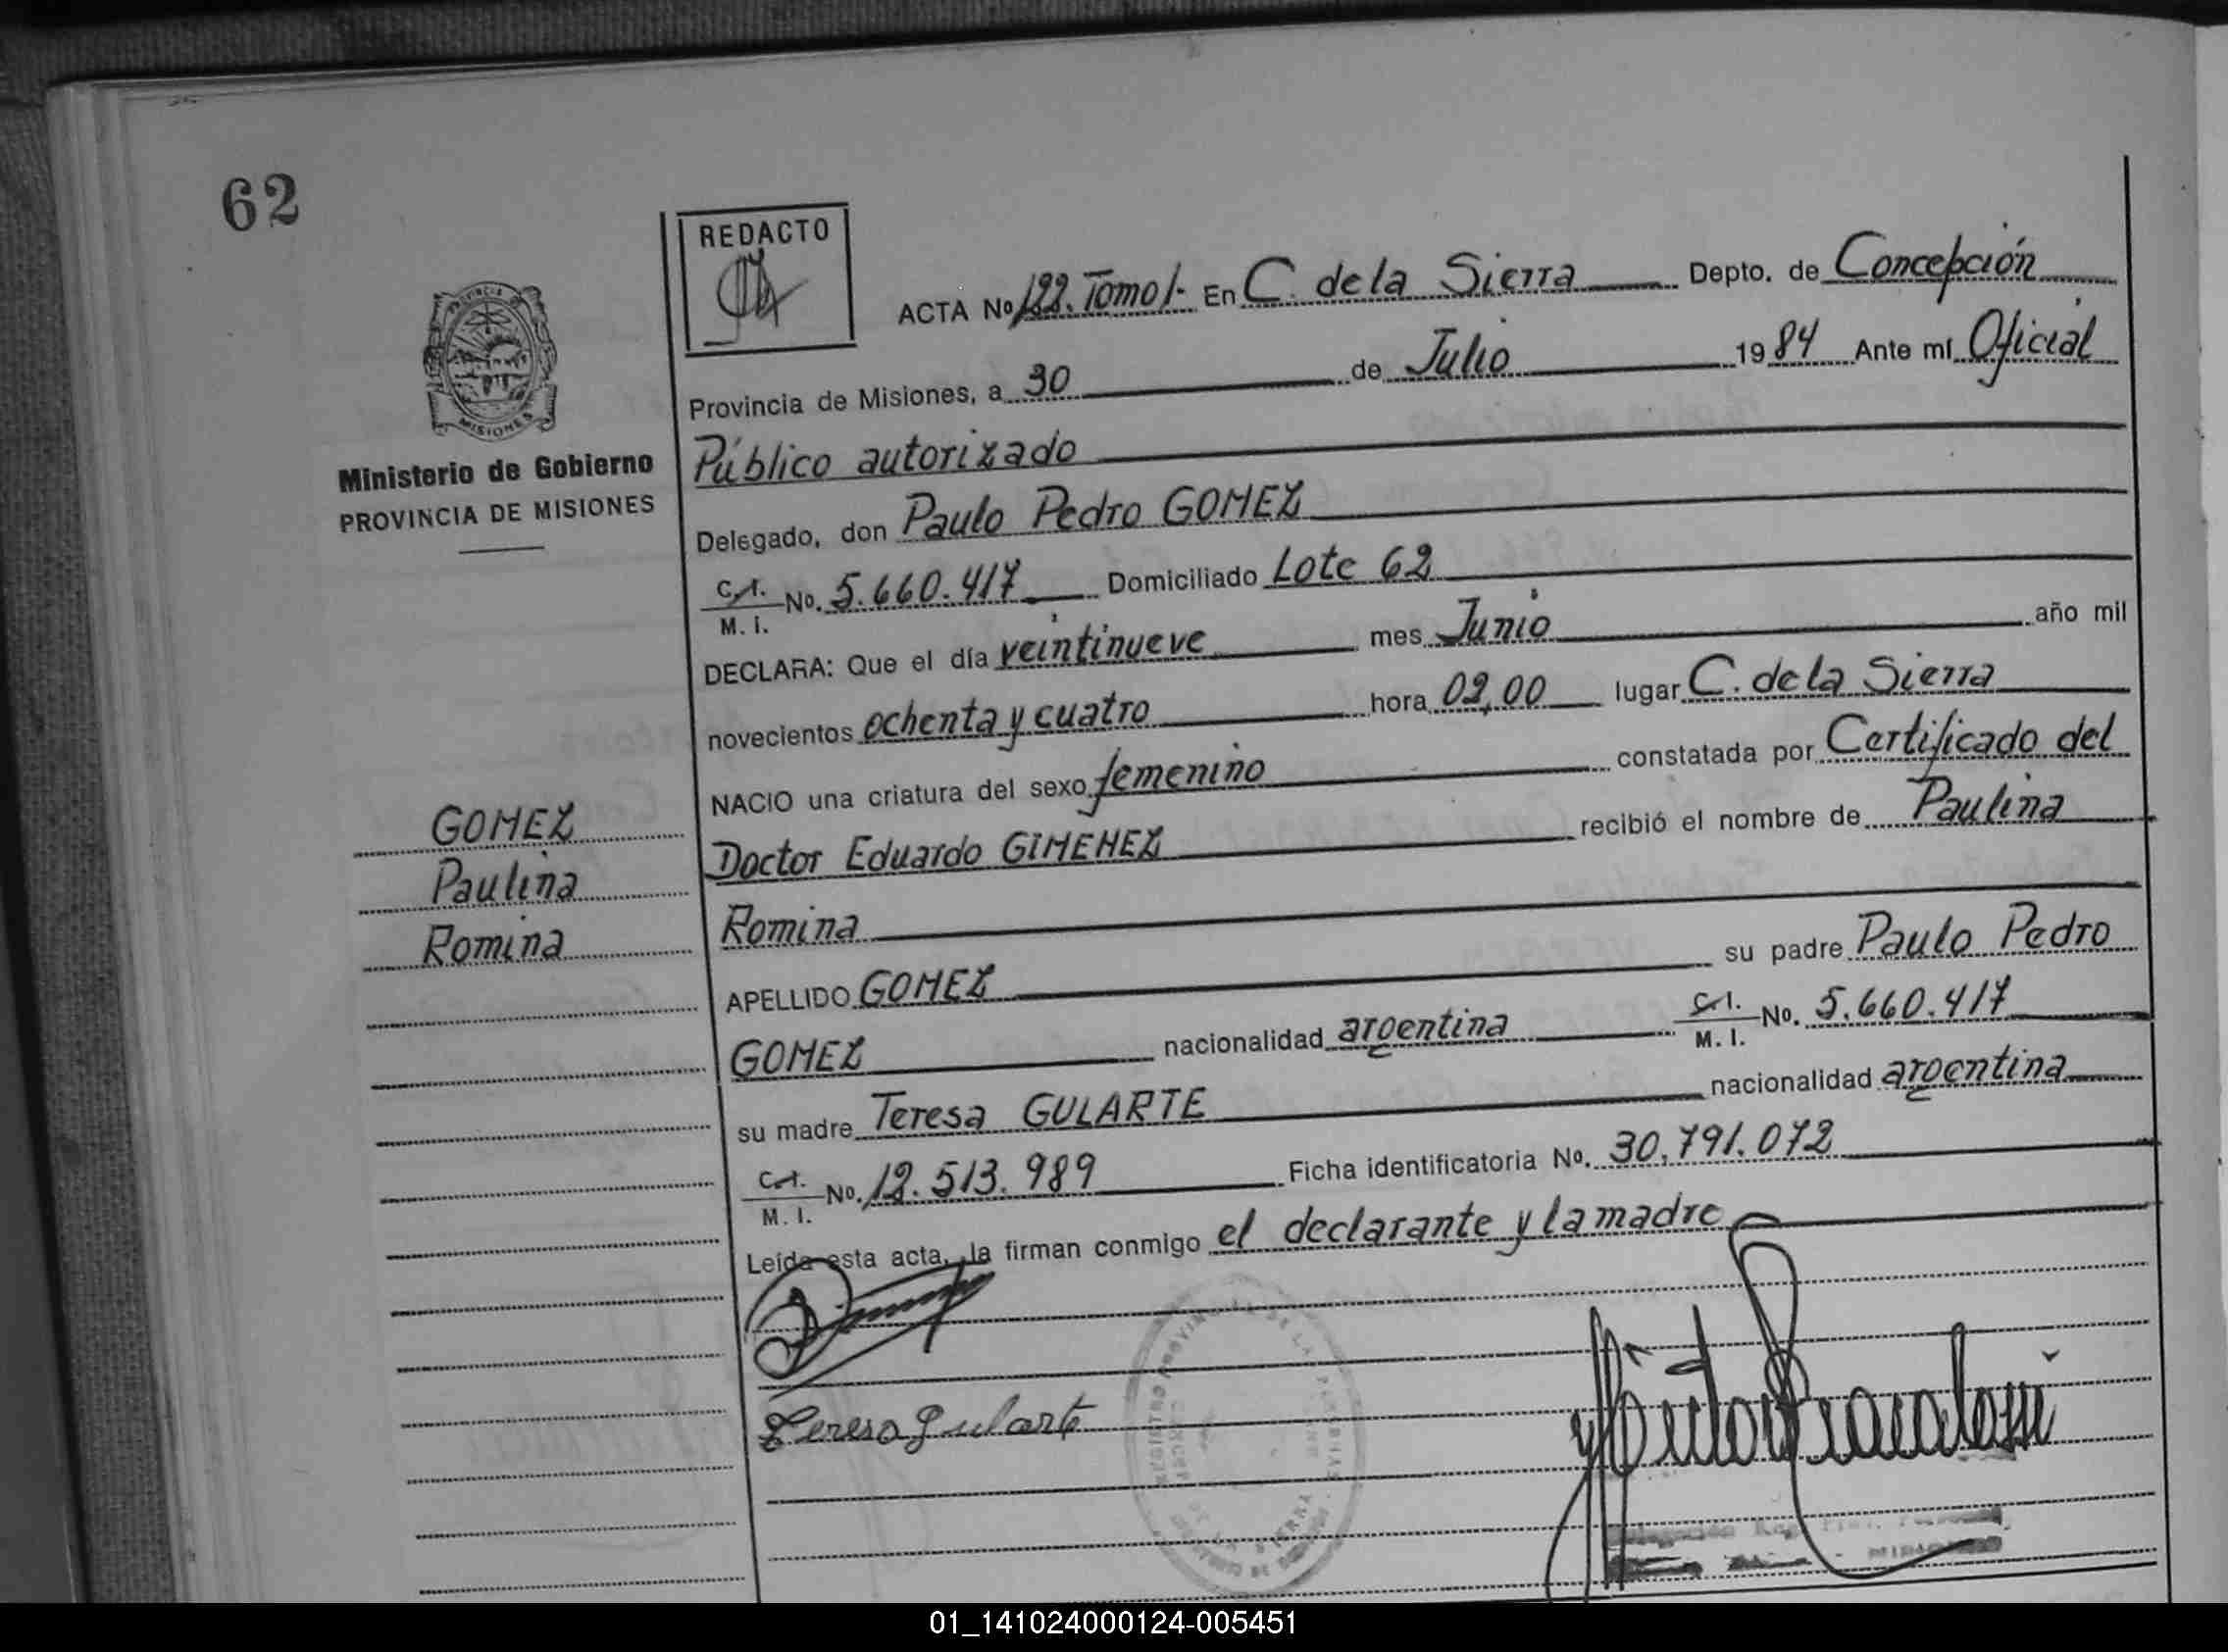 62
REDACTO
ACTA No 122. Tomo I- En C. de la Sierra Depto. de Concepción
Provincia de Misiones, a 30 de Julio 1984 Ante mí Oficial
Público autorizado
Delegado, don Paulo Pedro GOMEZ
C.I. M. I. No. 5.660.417 Domiciliado Lote 62
DECLARA: Que el día veintinueve mes Junio año mil
novecientos ochenta y cuatro hora 02,00 lugar C. de la Sierra
NACIO una criatura del sexo femenino constatada por Certificado del
Doctor Eduardo GIMENEZ recibió el nombre de Paulina
Romina
APELLIDO GOMEZ su padre Paulo Pedro
GOMEZ nacionalidad argentina C.I. M. I. No. 5.660.417
su madre Teresa GULARTE nacionalidad argentina
C.I. M. I. No. 12.513.989 Ficha identificatoria No. 30.791.072
Leída esta acta, la firman conmigo el declarante y la madre
Teresa Gularte
PROVINCIA DE
MISIONES
Ministerio de Gobierno
PROVINCIA DE MISIONES
GOMEZ
Paulina
Romina
01_141024000124-005451